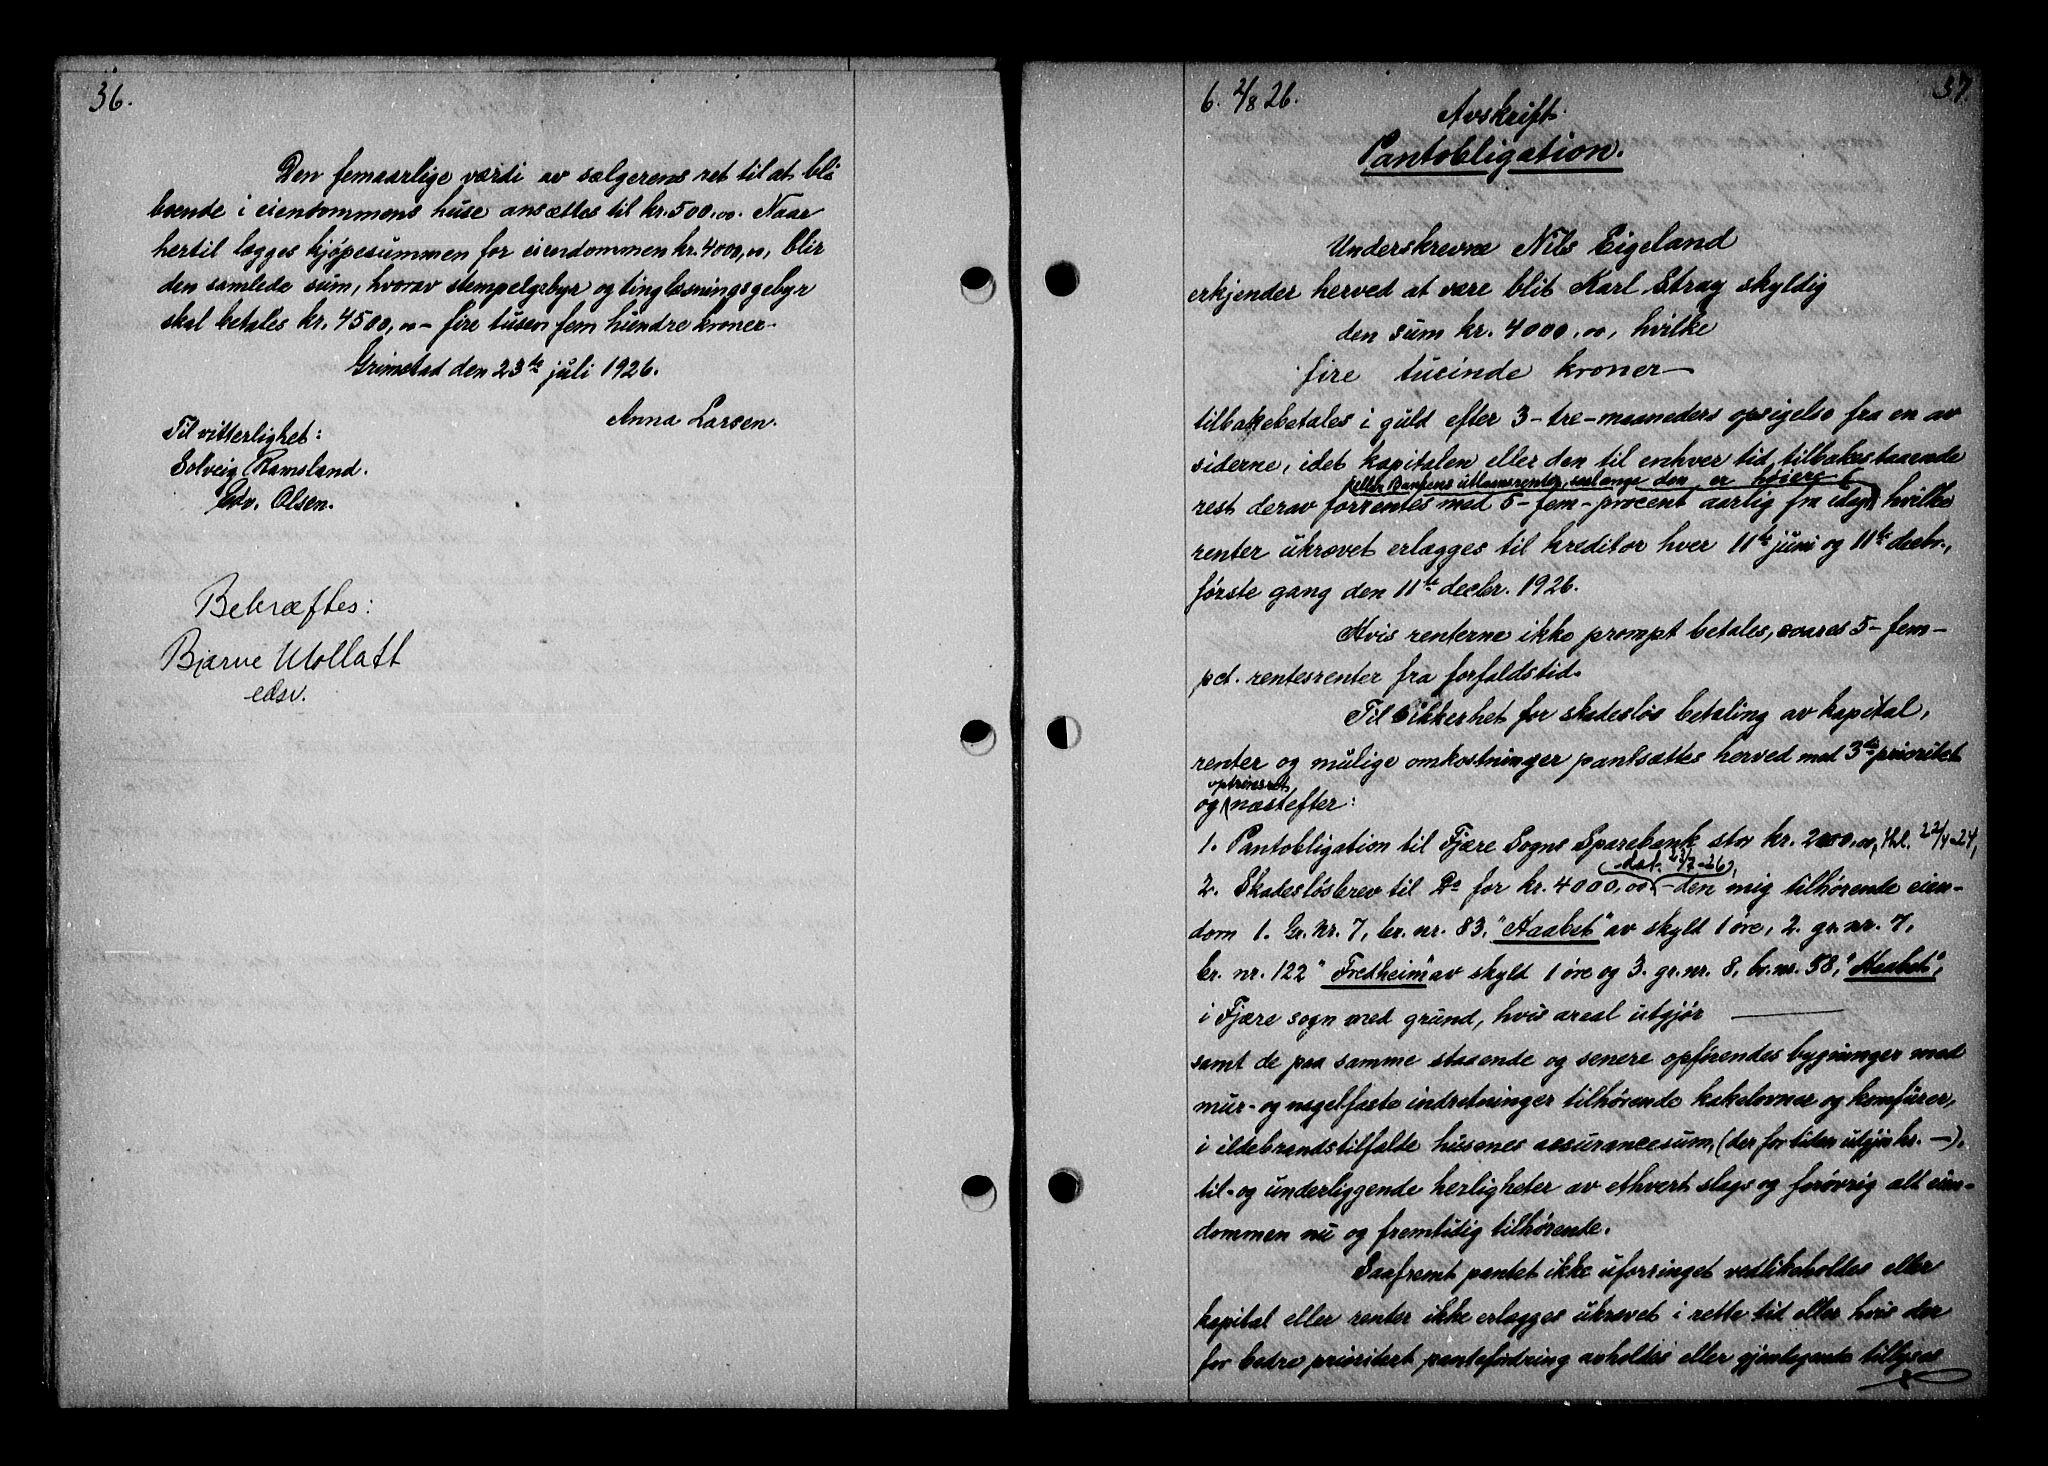 36.
Den femaarlige værdi av sælgerens ret til at bli
boende i eiendommens huse ansættes til kr. 500,00. Naar
hertil lægges kjøpesummen for eiendommen kr. 4000,00, blir
den samlede sum, hvorav stempelgebyr og tinglæsningsgebyr
skal betales kr. 4500,00 - fire tusen fem hundre kroner.
Grimstad den 23de juli 1926.
Anna Larsen.
Til vitterlighet:
Solveig Ramsland.
Edv. Olsen.
Bekræftes:
Bjarne Mollatt
edsv.
6. 2/8 26.
37.
Avskrift.
Pantobligation.
Underskrevne Nils Eigeland
erkjender herved at være blit Karl Stray skyldig
den sum kr. 4000,00, hvilke
fire tusinde kroner -
tilbakebetales i guld efter 3-tre-maaneders opsigelse fra en av
siderne, idet kapitalen eller den til enhver tid tilbakestaaende
(eller Bankens utlaansrente, saalænge den er høiere)
rest derav forrentes med 5-fem-procent aarlig fra idag, hvilke
renter ukrævet erlægges til kreditor hver 11te juni og 11te decbr.,
første gang den 11te decbr. 1926.
Hvis renterne ikke prompt betales, svares 5-fem-
pct. rentesrenter fra forfaldstid.
Til Sikkerhet for skadesløs betaling av kapital,
renter og mulige omkostninger pantsættes herved med 3die prioritet
optrinsret
og næstefter:
1. Pantobligation til Fjære Sogns Sparebank stor kr. 2000,00, thl. 22/4-24,
(dat. 23/7-26),
2. Skadesløsbrev til Do for kr. 4000,00 - den mig tilhørende eien-
dom 1. Gr. Nr. 7, br. nr. 83, "Haabet" av skyld 1 øre, 2. gr. nr. 7,
br. nr. 122 "Fredheim" av skyld 1 øre og 3. gr. nr. 8, br. nr. 58, "Haabet",
i Fjære sogn med grund, hvis areal utgjør ———
samt de paa samme staaende og senere opførendes bygninger med
mur- og nagelfaste indretninger tilhørende kakelovner og komfurer,
i ildebrandstilfælde husenes assurancesum, (der for tiden utgjør kr. —).
til- og underliggende herligheter av ethvert slags og forøvrig alt eien-
dommen nu og fremtidig tilhørende.
Saafremt pantet ikke uforringet vedlikeholdes eller
kapital eller renter ikke erlægges ukrævet i rette tid eller hvis der
for bedre prioritert pantefordring avholdes eller gjentagende tillyses